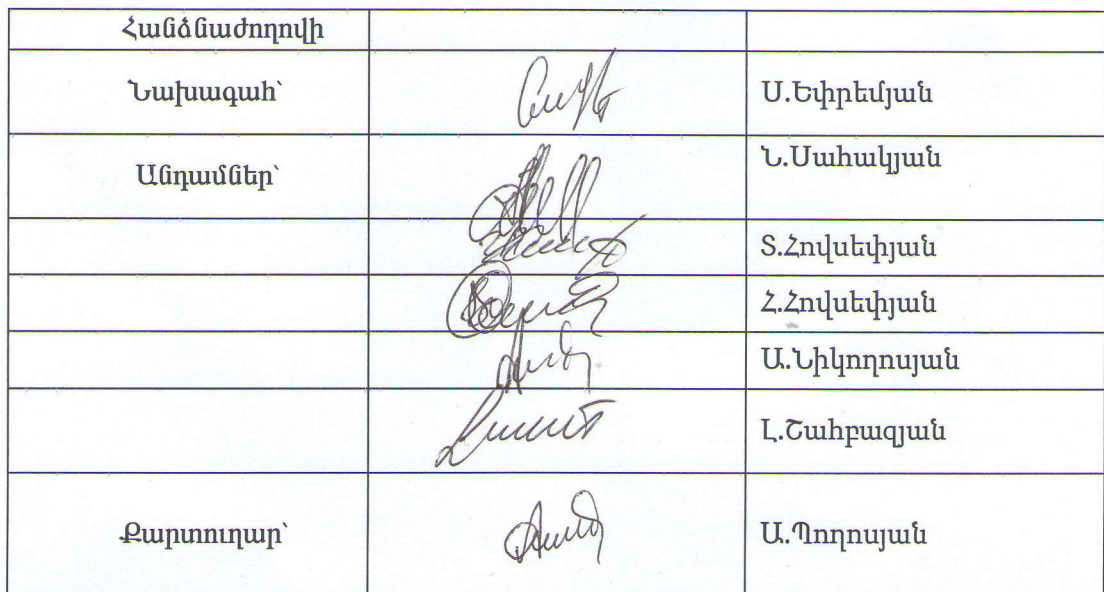 Հանձնաժողովի
Նախագահ՝ Ս.Եփրեմյան
Անդամներ՝ Ն.Սահակյան
Տ.Հովսեփյան
Հ.Հովսեփյան
Ա.Նիկողոսյան
Լ.Շահբազյան
Քարտուղար՝ Ա.Պողոսյան